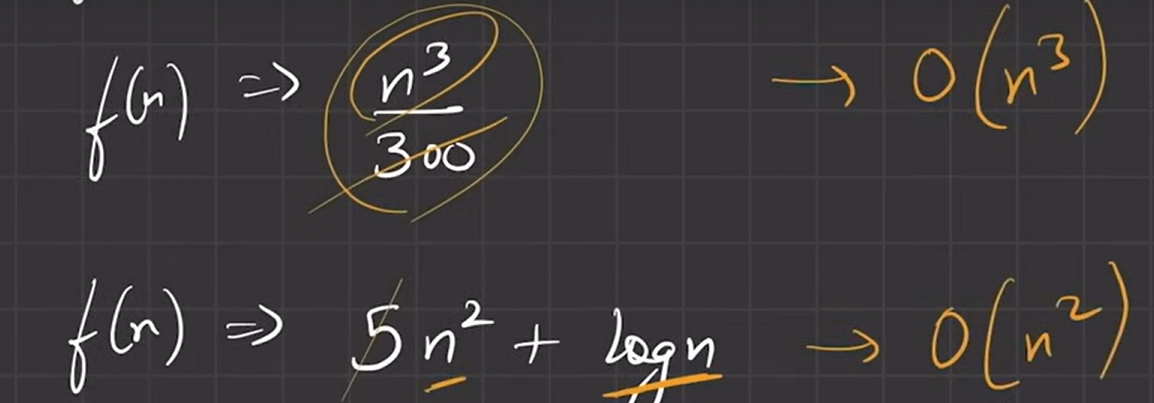 f(n) => n³/300 → O(n³)
f(n) => 5n² + log n → O(n²)